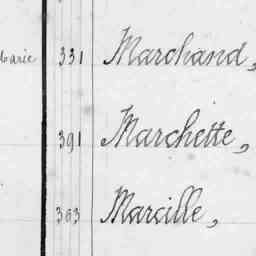 331 Marchand,
391 Marchette,
363 Marcille,